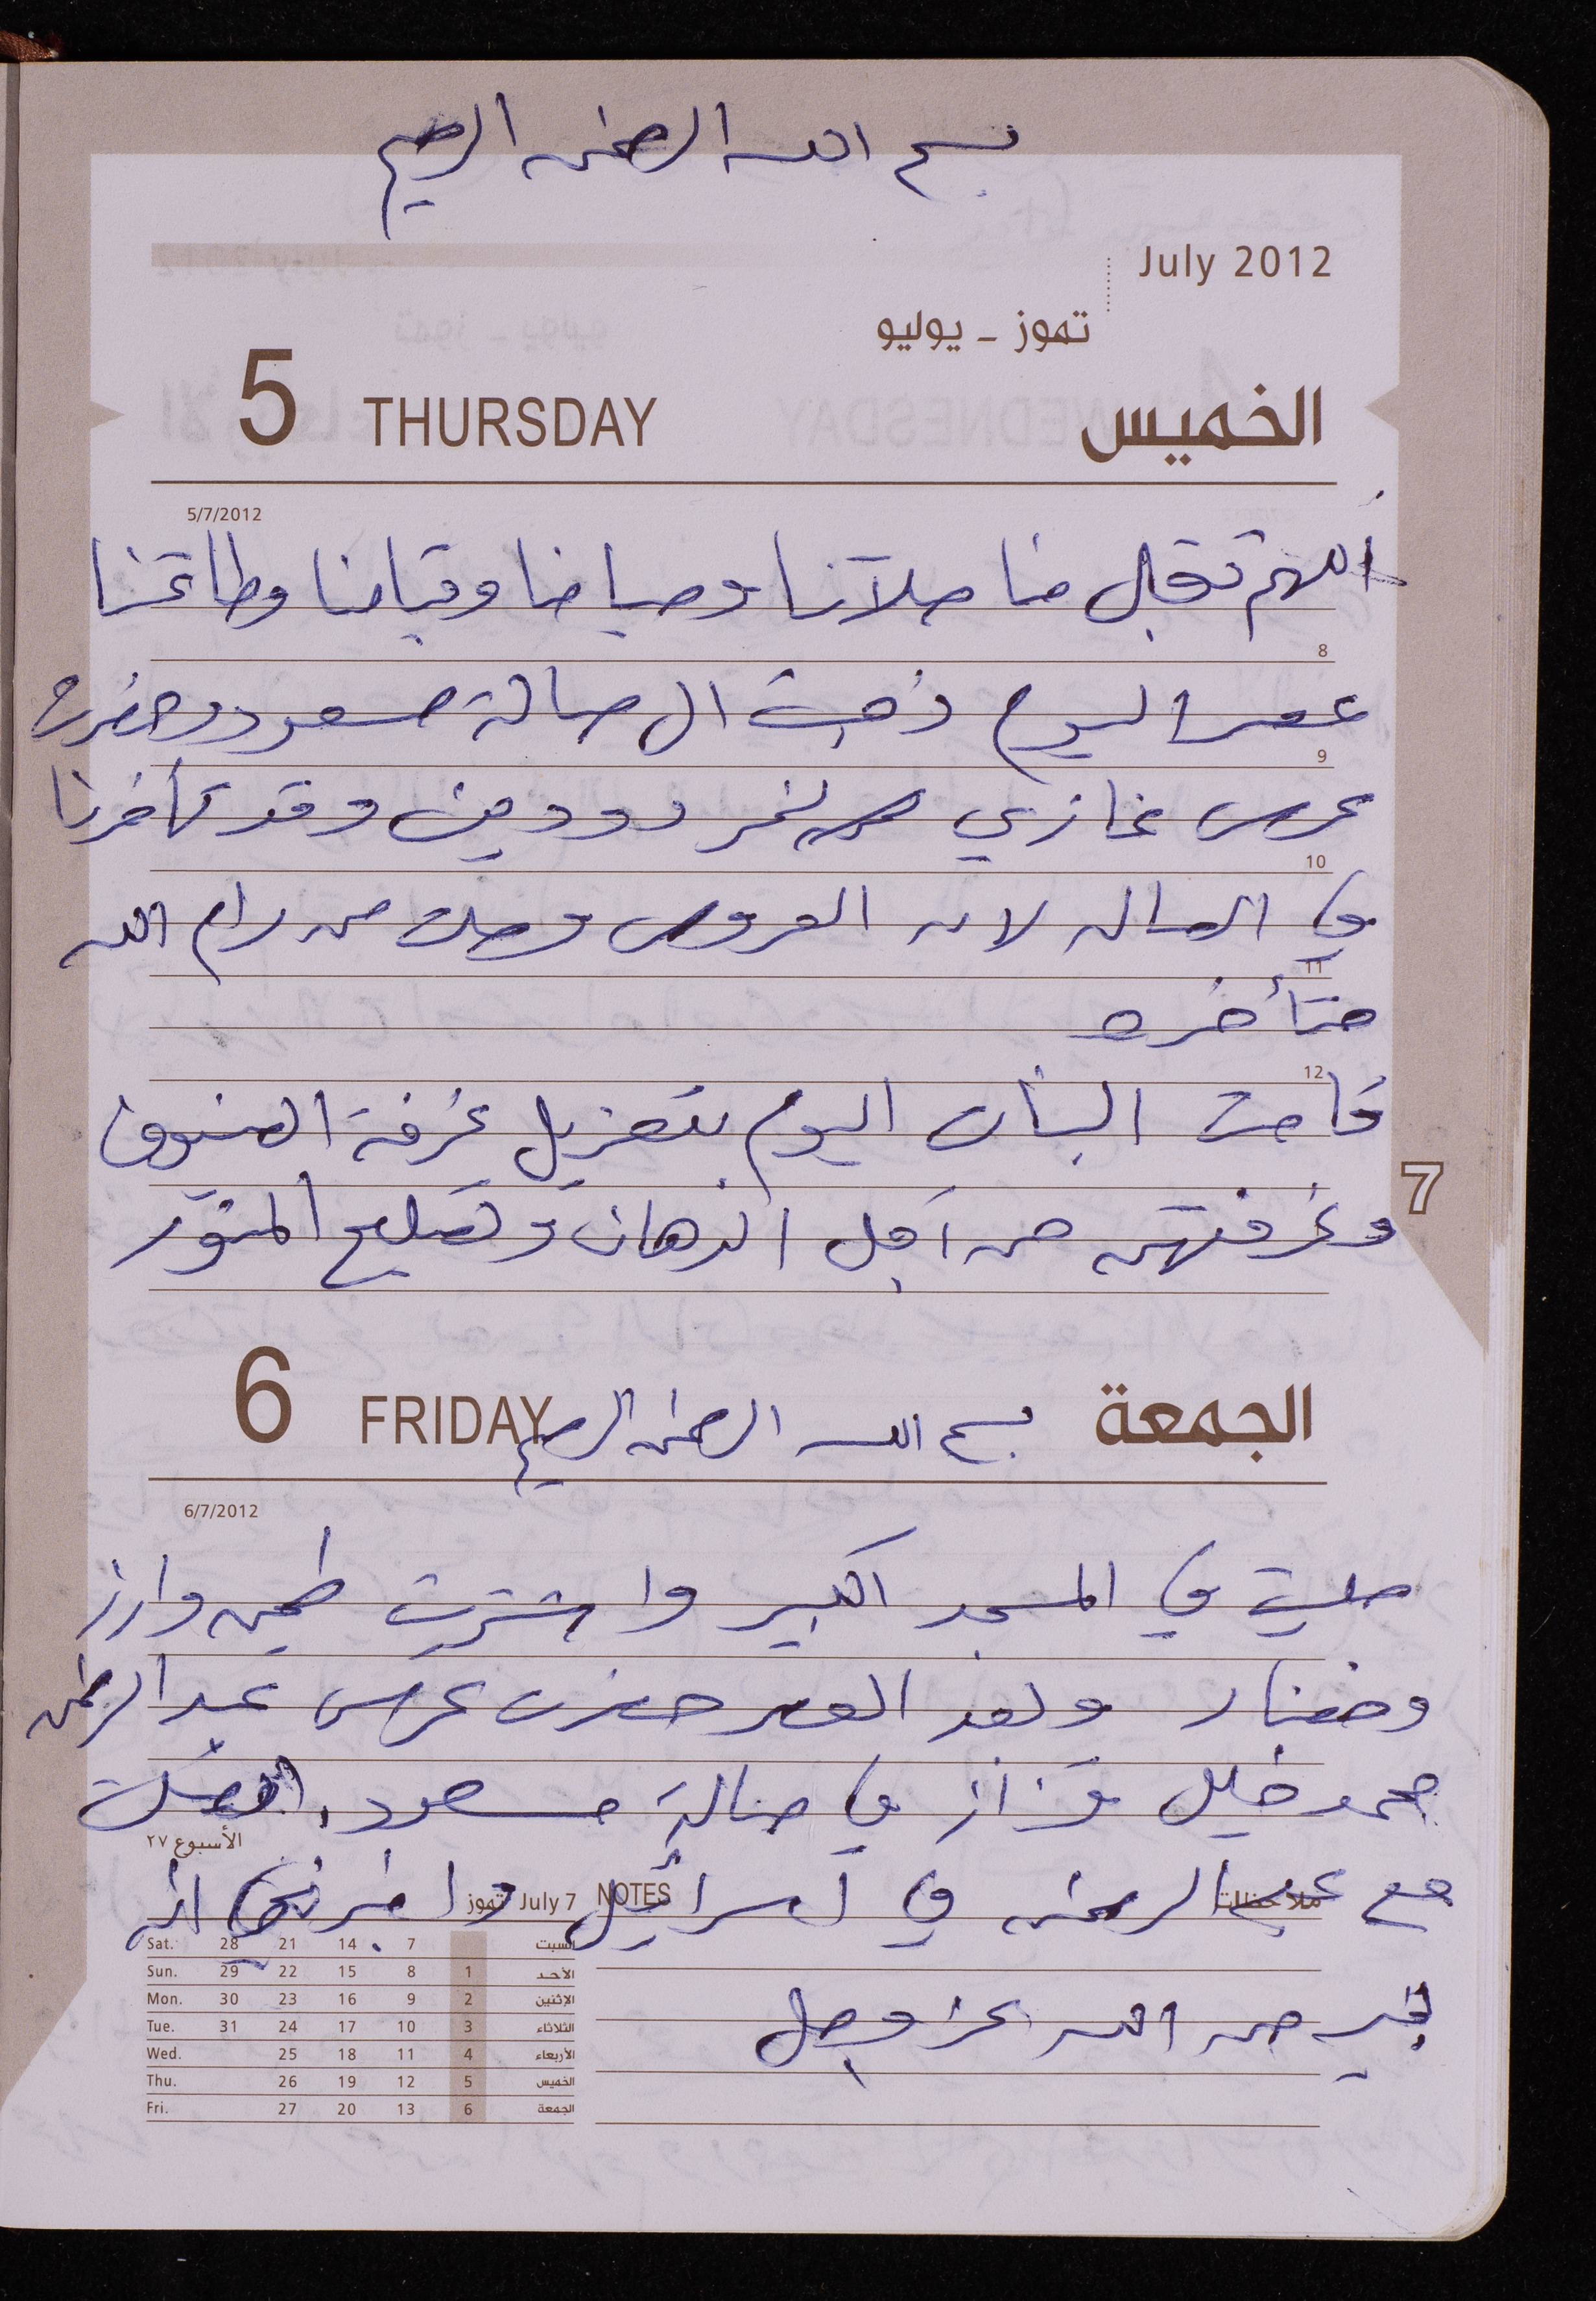 بسم الله الرحمن الرحيم
July 2012
تموز - يوليو
5 THURSDAY الخميس
5/7/2012
اللهم تقبل منا صلاتنا وصيامنا وقيامنا وطاعتنا
8
عصر اليوم ذهبت الى صالة مسعود وحضرت
9
عرس غازي نمر دودين وقد تأخرنا
10
في الصاله لان العروس وصلت من رام الله
11
متأخره
12
قامت البنات اليوم بتعزيل غرفة الضيوف
7
وغرفتهن من اجل الدهان وتصليح
6 FRIDAY الجمعة
بسم الله الرحمن الرحيم
6/7/2012
صليت في المسجد الكبير واشتريت طحين وارز
وخضار وبعد العصر حضرت عرس عبد الرحمن
محمد خليل قزاز في صالة مسعود. اتصلت
الأسبوع ٢٧
مع عبد الرحمن في اسرائيل واخبرني انه
ملاحظات NOTES July 7 تموز
بخير من الله عز وجل
Sat. 28 21 14 7 السبت
Sun. 29 22 15 8 1 الأحد
Mon. 30 23 16 9 2 الإثنين
Tue. 31 24 17 10 3 الثلاثاء
Wed. 25 18 11 4 الأربعاء
Thu. 26 19 12 5 الخميس
Fri. 27 20 13 6 الجمعة